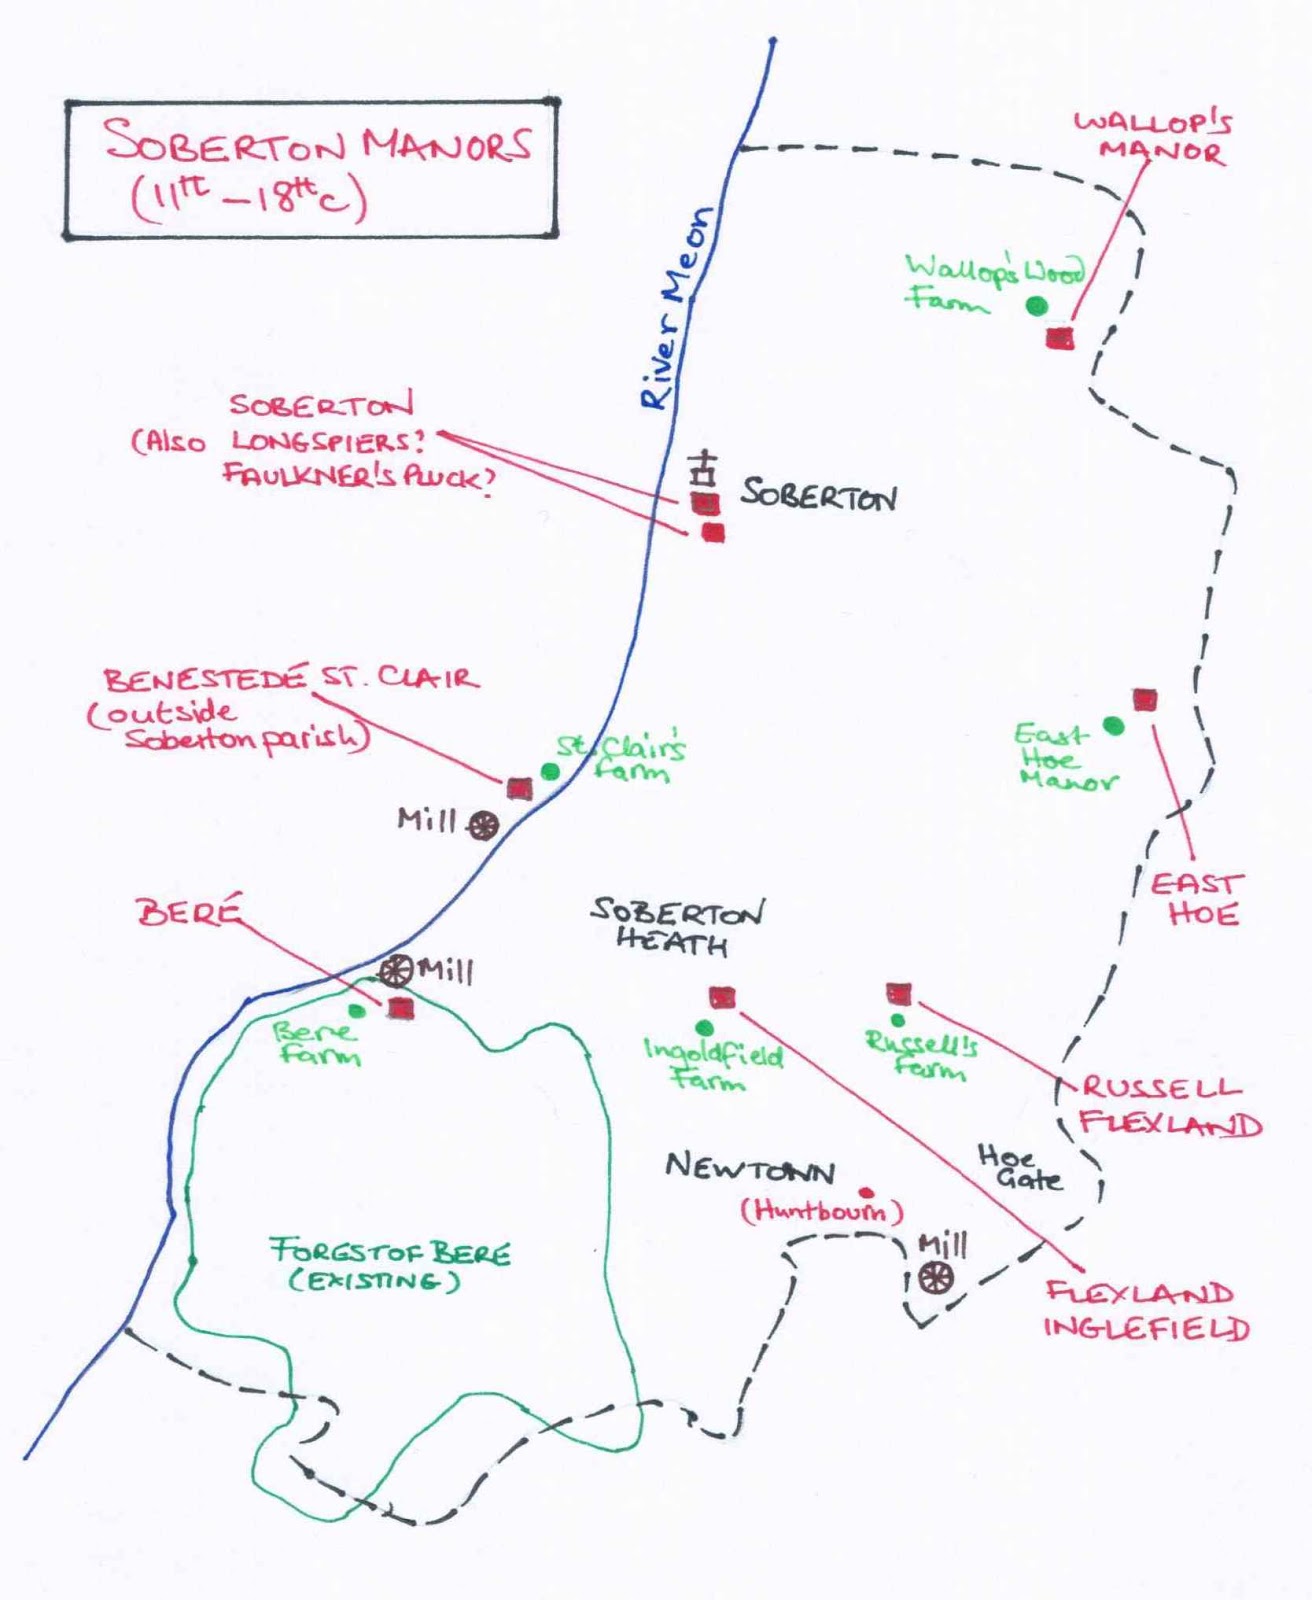 SOBERTON MANORS
(11th – 18th c)
WALLOP'S
MANOR
River Meon
Wallop's Wood
Farm
SOBERTON
(Also LONGSPIERS?
FAULKNER'S PLUCK?
SOBERTON
BENESTEDE ST. CLAIR
(outside
Soberton parish)
St. Clair's
Farm
Mill
East
Hoe
Manor
EAST
HOE
BERE
SOBERTON
HEATH
Mill
Bere
Farm
Ingoldfield
Farm
Russell's
Farm
RUSSELL
FLEXLAND
Hoe
Gate
NEWTOWN
(Huntbourn)
Mill
FOREST OF BERE
(EXISTING)
FLEXLAND
INGLEFIELD